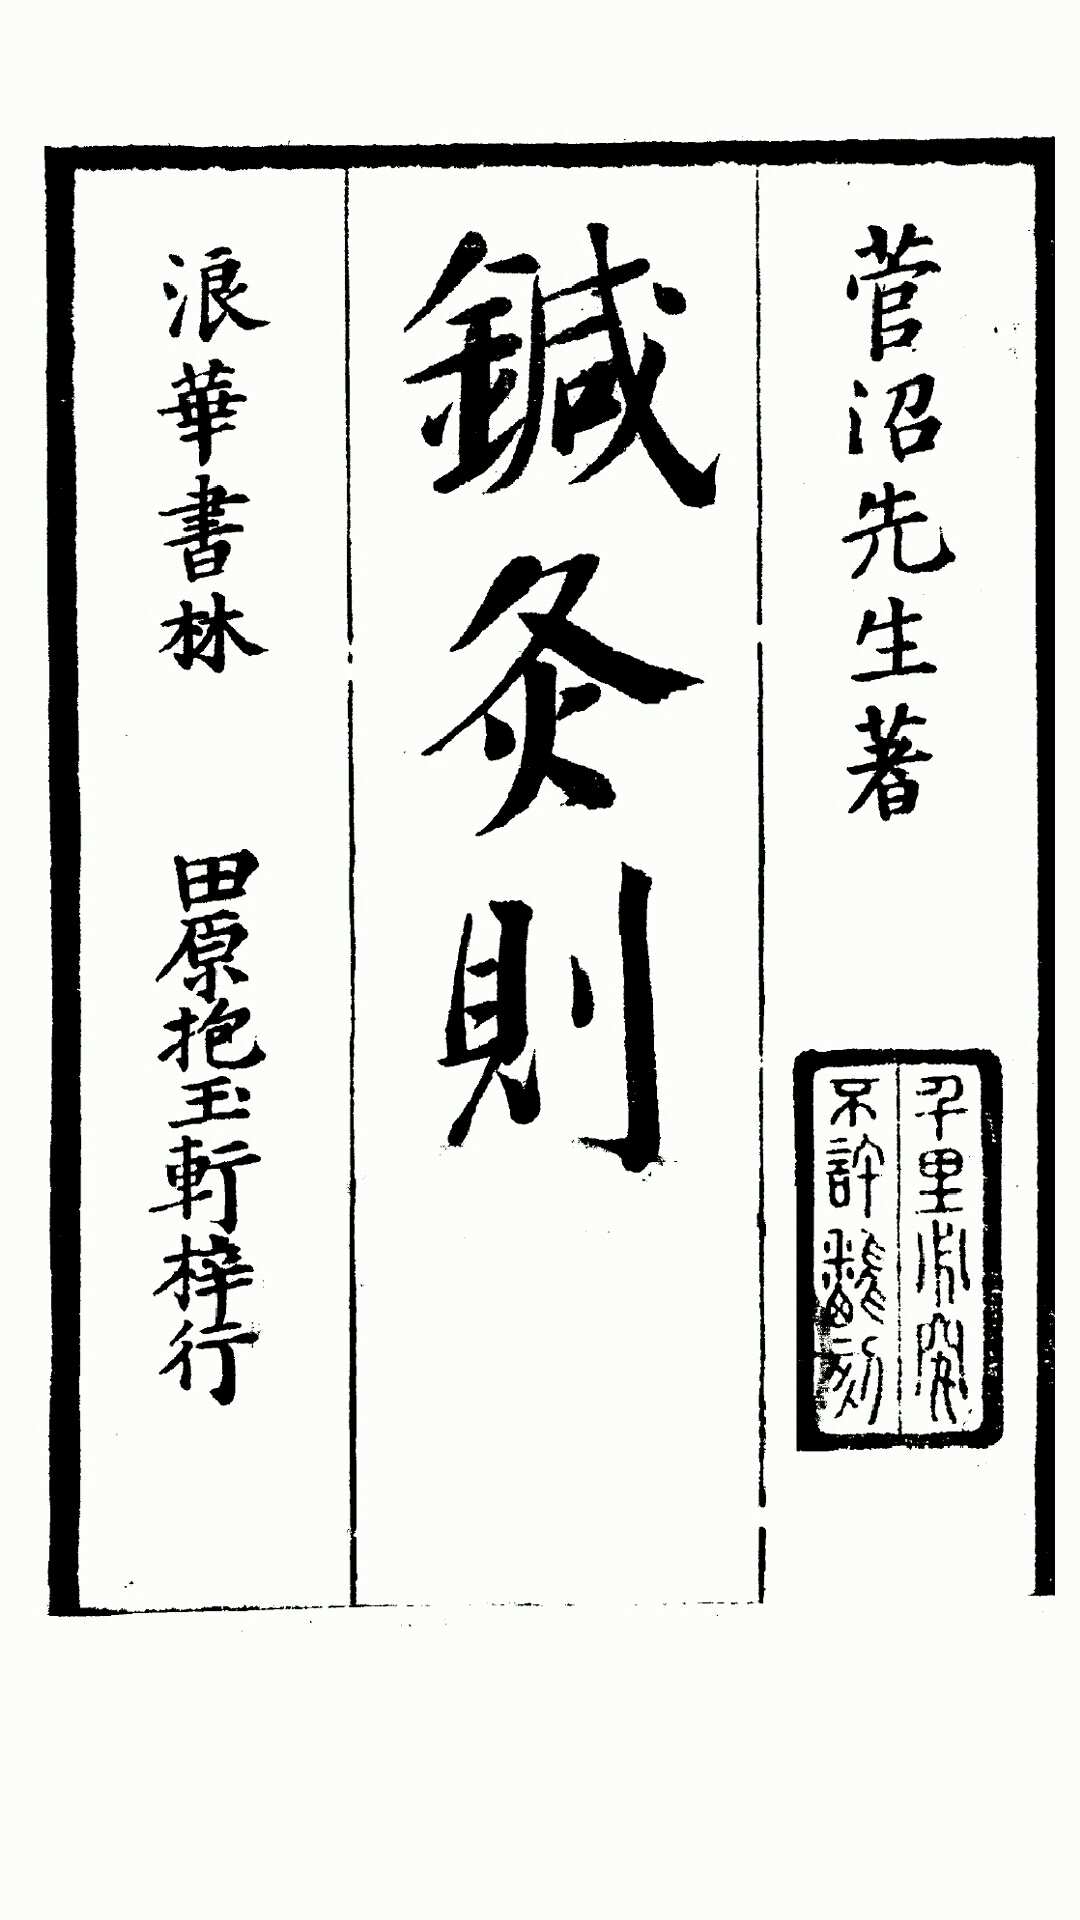 菅沼先生著
千里必究
不許翻刻
鍼灸則
浪華書林　田原抱玉軒梓行